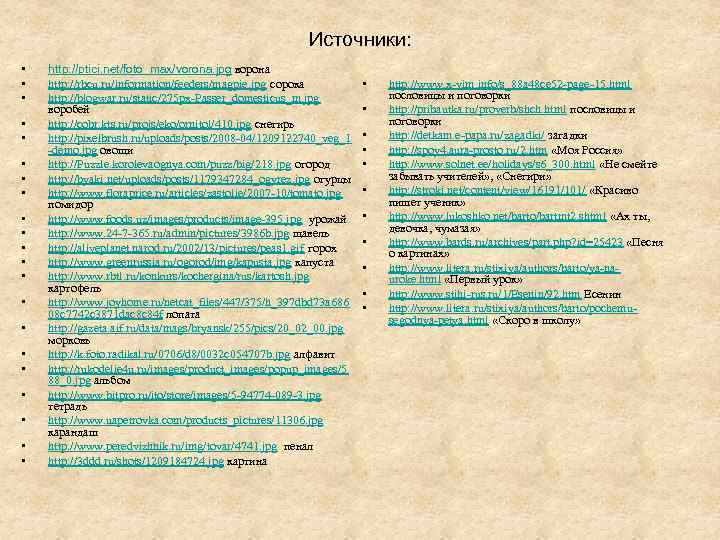 Источники:
• http://ptici.net/foto_max/vorona.jpg ворона
• http://rbcu.ru/information/feeders/magpie.jpg сорока
• http://blogwar.ru/static/275px-Passer_domesticus_m.jpg
воробей
• http://cobr.kts.ru/projs/eko/ornitol/410.jpg снегирь
• http://pixelbrush.ru/uploads/posts/2008-04/1209122740_veg_1
-demo.jpg овощи
• http://Puzzle.korolevaognya.com/puzz/big/218.jpg огород
• http://byaki.net/uploads/posts/1179347284_ogyrez.jpg огурцы
• http://www.floraprice.ru/articles/zastolie/2007-10/tomato.jpg
помидор
• http://www.foods.uz/images/products/image-395.jpg урожай
• http://www.24-7-365.ru/admin/pictures/3986b.jpg щавель
• http://aliveplanet.narod.ru/2002/13/pictures/peas1.gif горох
• http://www.greenrussia.ru/ogorod/img/kapusta.jpg капуста
• http://www.rbtl.ru/konkurs/kochergina/rus/kartosh.jpg
картофель
• http://www.joyhome.ru/netcat_files/447/375/h_397dbd73a686
08c7742c3871dac8c84f лопата
• http://gazeta.aif.ru/data/mags/bryansk/255/pics/20_02_00.jpg
морковь
• http://k.foto.radikal.ru/0706/d8/0032c054707b.jpg алфавит
• http://rukodelie4u.ru/images/product_images/popup_images/5
88_0.jpg альбом
• http://www.bitpro.ru/ito/store/images/5-94774-089-3.jpg
тетрадь
• http://www.uapetrovka.com/products_pictures/11306.jpg
карандаш
• http://www.peredvizhnik.ru/img/tovar/4741.jpg пенал
• http://3ddd.ru/shots/1209184724.jpg картина
• http://www.x-vim.info/s_88a48ce52-page-15.html
пословицы и поговорки
• http://pribautka.ru/proverb/shch.html пословицы и
поговорки
• http://detkam.e-papa.ru/zagadki/ загадки
• http://spov4.aura-prosto.ru/2.htm «Моя Россия»
• http://www.solnet.ee/holidays/s6_300.html «Не смейте
забывать учителей», «Снегири»
• http://stroki.net/content/view/16191/101/ «Красиво
пишет ученик»
• http://www.lukoshko.net/barto/bartmt2.shtml «Ах ты,
девочка, чумазая»
• http://www.bards.ru/archives/part.php?id=25423 «Песня
о картинах»
• http://www.litera.ru/stixiya/authors/barto/ya-na-
uroke.html «Первый урок»
• http://www.stihi-rus.ru/1/Esenin/92.htm Есенин
• http://www.litera.ru/stixiya/authors/barto/pochemu-
segodnya-petya.html «Скоро в школу»